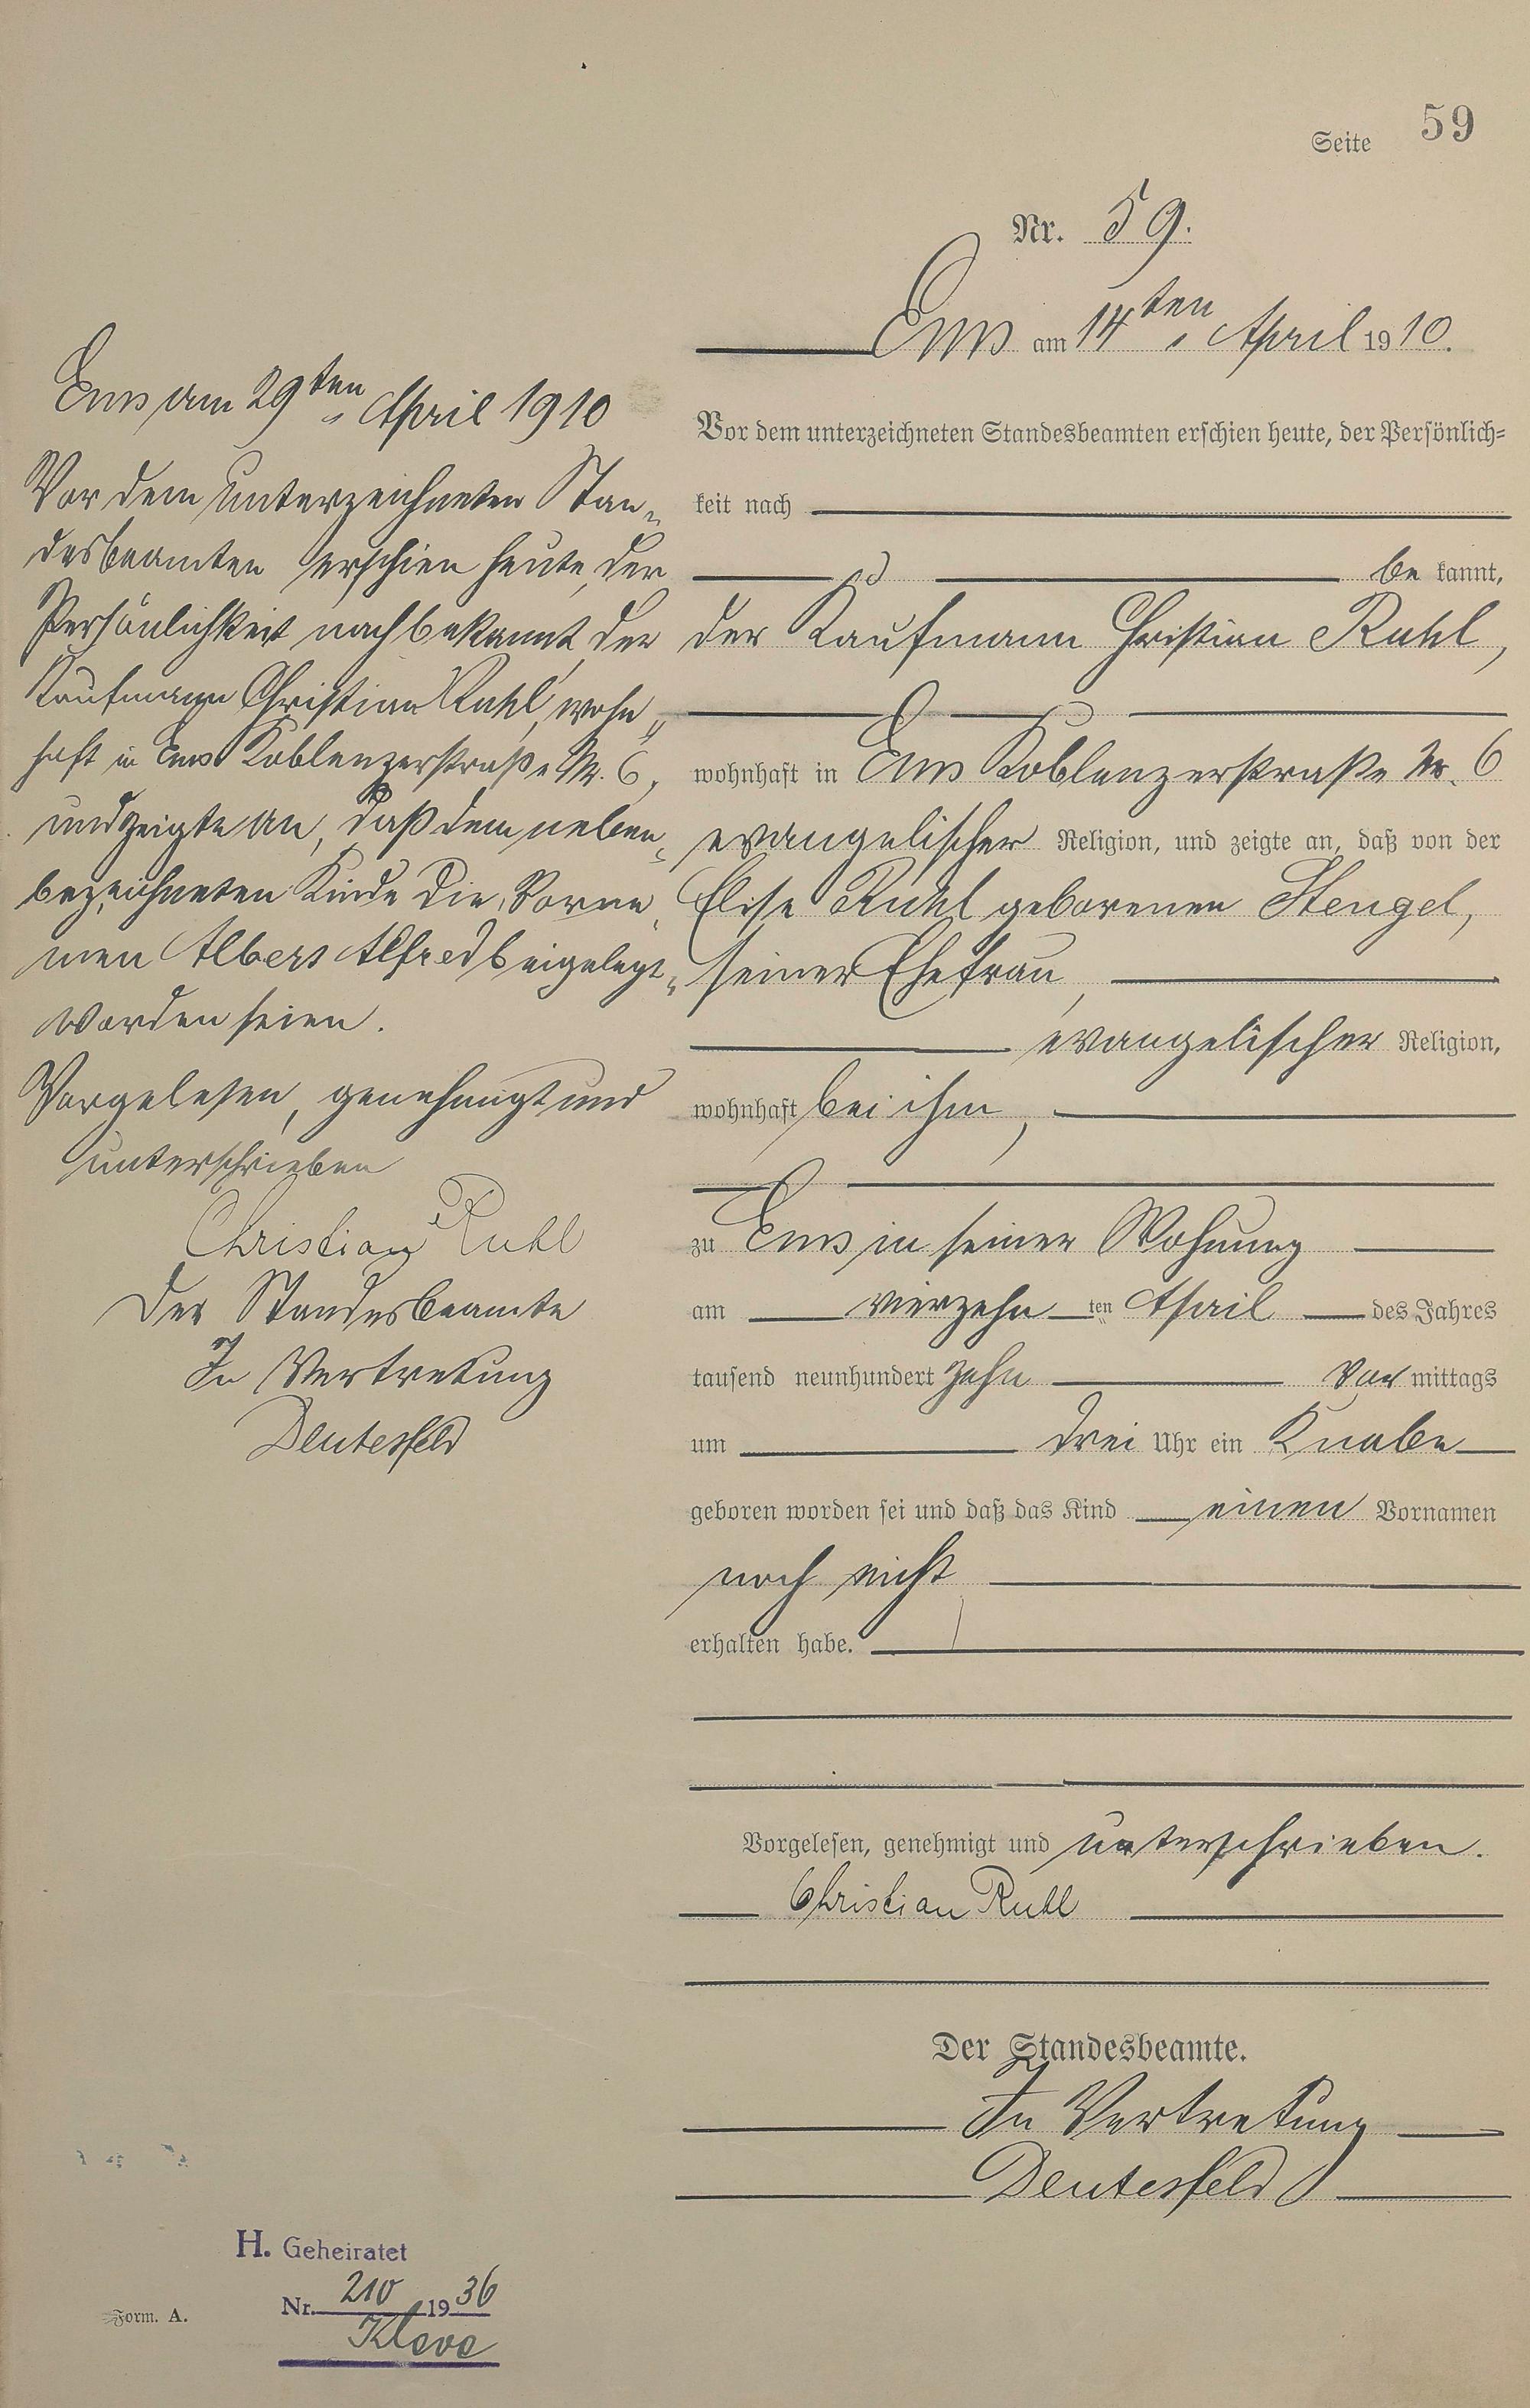 Seite 59
Nr. 59.
Ems am 14ten April 1910.
Vor dem unterzeichneten Standesbeamten erschien heute, der Persönlich=
keit nach
be kannt,
der Kaufmann Christian Ruhl,
wohnhaft in Ems Koblenzerstraße Nr. 6
evangelischer Religion, und zeigte an, daß von der
Elise Ruhl geborenen Stengel,
seiner Ehefrau,
evangelischer Religion,
wohnhaft bei ihm,
zu Ems in seiner Wohnung
am vierzehn ten April des Jahres
tausend neunhundert zehn Vor mittags
um drei Uhr ein Knabe
geboren worden sei und daß das Kind einen Vornamen
noch nicht
erhalten habe.
Vorgelesen, genehmigt und unterschrieben.
Christian Ruhl
Der Standesbeamte.
In Vertretung
Deutesfeld
Ems am 29ten April 1910
Vor dem unterzeichneten Stan=
desbeamten erschien heute, der
Persönlichkeit nach bekannt, der
Kaufmann Christian Ruhl, wohn=
haft in Ems Koblenzerstraße Nr. 6,
und zeigte an, daß dem neben=
bezeichneten Kinde die Vorna=
men Albert Alfred beigelegt
worden seien.
Vorgelesen, genehmigt und
unterschrieben
Christian Ruhl
Der Standesbeamte
In Vertretung
Deutesfeld
H. Geheiratet
Nr. 210 1936
Kleve
Form. A.